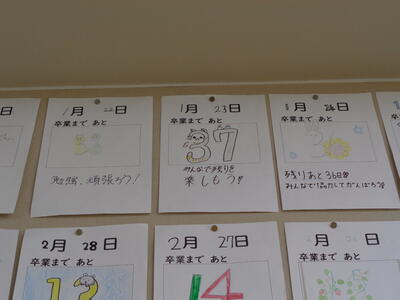 1月 22日
卒業まで あと
38
勉強、頑張ろう!
1月 23日
卒業まで あと
37
みんなで残りを
楽しもう!!
1月 24日
卒業まで あと
36
残りあと36日!!
みんなで協力してがんばろう!!
2月 28日
卒業まで あと
2月 27日
卒業まで あと
14
卒業まで あと